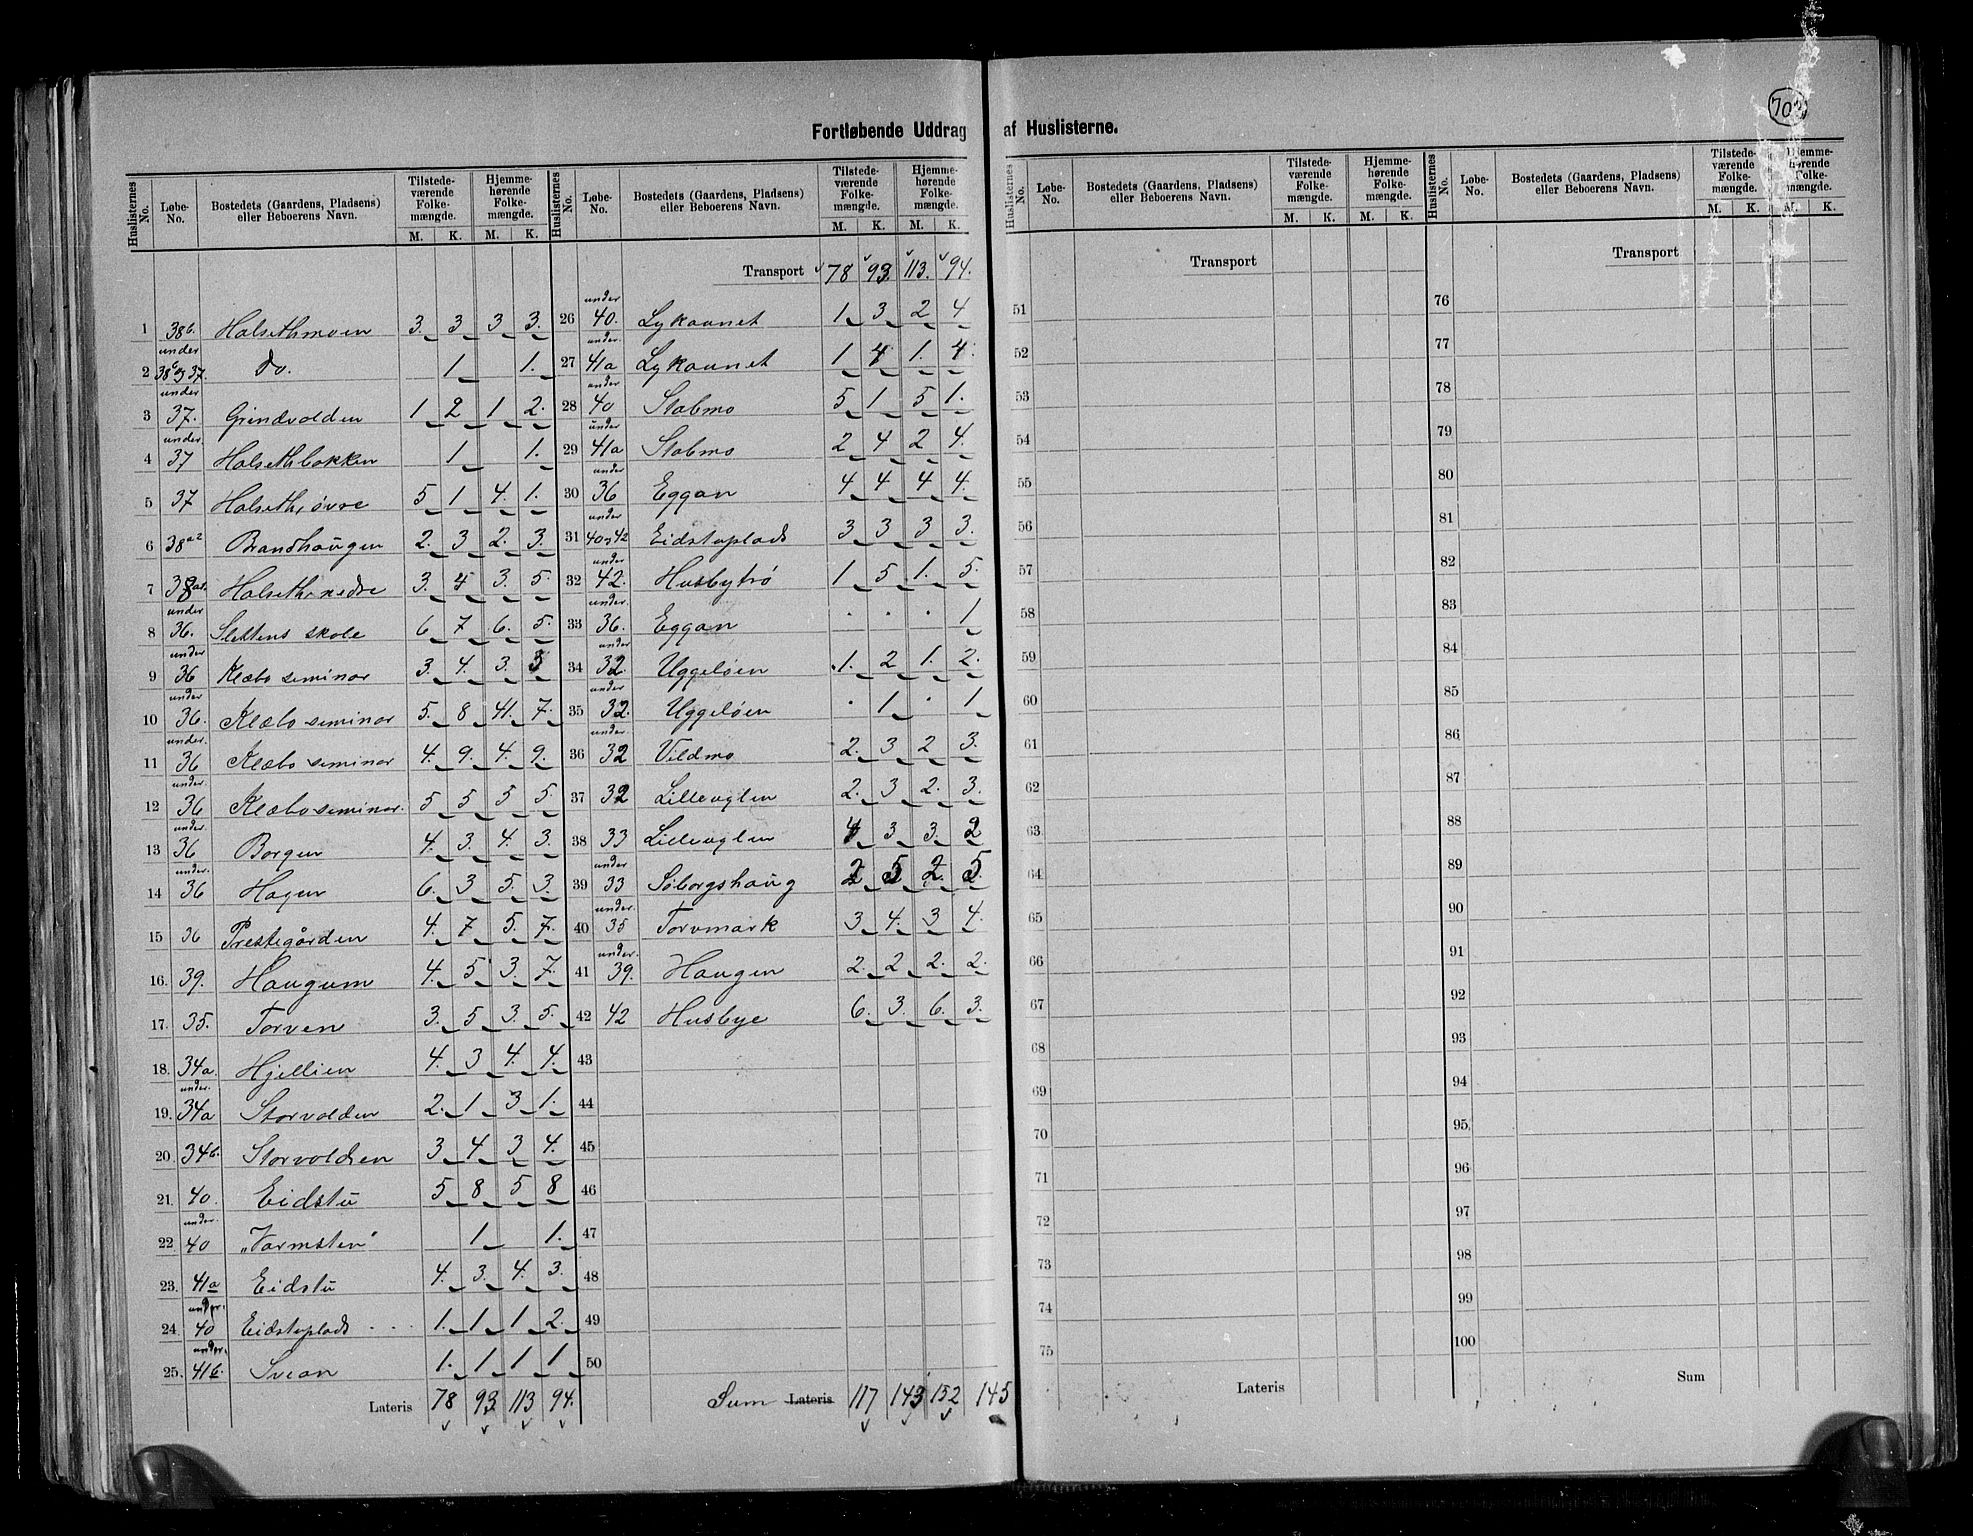 702
Fortløbende Uddrag af Huslisterne.
Huslisternes No. Løbe-No. Bostedets (Gaardens, Pladsens) eller Beboerens Navn. Tilstedeværende Folkemængde. M. K. Hjemmehørende Folkemængde. M. K.
1 38b. Halsethmoen 3. 3 3 3.
2 under 38c og 37. do. 1 1.
3 under 37. Grindvolden 1 2 1 2.
4 under 37 Halsethbakken 1 1.
5 37 Halseth, øvre 5 1 4. 1.
6 38a2 Brandhaugen 2. 3 2. 3.
7 38a1. Halseth, nedre 3. 4 3. 5.
8 under 36. Slettens skole 6 7 6. 5.
9 under 36 Klæbo seminar 3. 4. 3. 3
10 under 36. Klæbo seminar 5. 8 41. 7.
11 under. 36 Klæbo seminar 4. 9. 4. 9.
12 under. 36 Klæbo seminar. 5 5 5 5.
13 under. 36 Borgen 4. 3. 4. 3.
14 under. 36 Hagen 6. 3 5. 3.
15 36 Prestegården 4. 7 5. 7.
16. 39. Haugum 4. 5 3. 7.
17. 35. Torven 3. 5 3. 5.
18. 34a. Hjellien 4. 3 4. 4.
19. under. 34a Storvolden 2. 1 3 1.
20. 34b. Storvolden 3 4 3 4.
21. 40. Eidstu 5 8 5 8
22 under. 40 „Varmsten" 1 1.
23. 41a Eidstu 4. 3. 4. 3.
24. under. 40 Eidstuplads 1. 1 1 2.
25. under. 41b. Svean 1. 1 1 1
Lateris 78 93 113 94.
Huslisternes No. Løbe-No. Bostedets (Gaardens, Pladsens) eller Beboerens Navn. Tilstedeværende Folkemængde. M. K. Hjemmehørende Folkemængde. M. K.
Transport 78 93. 113. 94.
26 under 40. Lykaunet 1 3 2 4
27 under. 41a Lykaunet 1 4 1. 4.
28 under 40 Stabmo 5 1 5 1.
29 under 41a Stabmo 2 4 2 4.
30 under 36 Eggan 4 4 4 4.
31 under 40 og 42 Eidstuplads 3 3 3 3.
32 under 42. Husbytrø 1 5 1. 5.
33 under. 36. Eggan . . . 1
34 under 32. Uggeløen 1. 2 1. 2.
35 under 32. Uggeløen . 1 . 1
36 under. 32 Vildmo 2. 3 2 3.
37 32 Lilleuglen 2. 3 2. 3.
38 33 Lilleuglen 4 3 3. 2
39 under 33 Søborgshaug 2 5 2. 5.
40 under. 35 Torvmark 3 4. 3 4.
41 under. 39. Haugen 2. 2 2. 2.
42 42 Husbye 6. 3. 6. 3.
43
44
45
46
47
48
49
50
Sum Lateris 117 143 152 145
Huslisternes No. Løbe-No. Bostedets (Gaardens, Pladsens) eller Beboerens Navn. Tilstedeværende Folkemængde. M. K. Hjemmehørende Folkemængde. M. K.
Transport
51
52
53
54
55
56
57
58
59
60
61
62
63
64
65
66
67
68
69
70
71
72
73
74
75
Lateris
Huslisternes No. Løbe-No. Bostedets (Gaardens, Pladsens) eller Beboerens Navn. Tilstedeværende Folkemængde. M. K. Hjemmehørende Folkemængde. M. K.
Transport
76
77
78
79
80
81
82
83
84
85
86
87
88
89
90
91
92
93
94
95
96
97
98
99
100
Sum